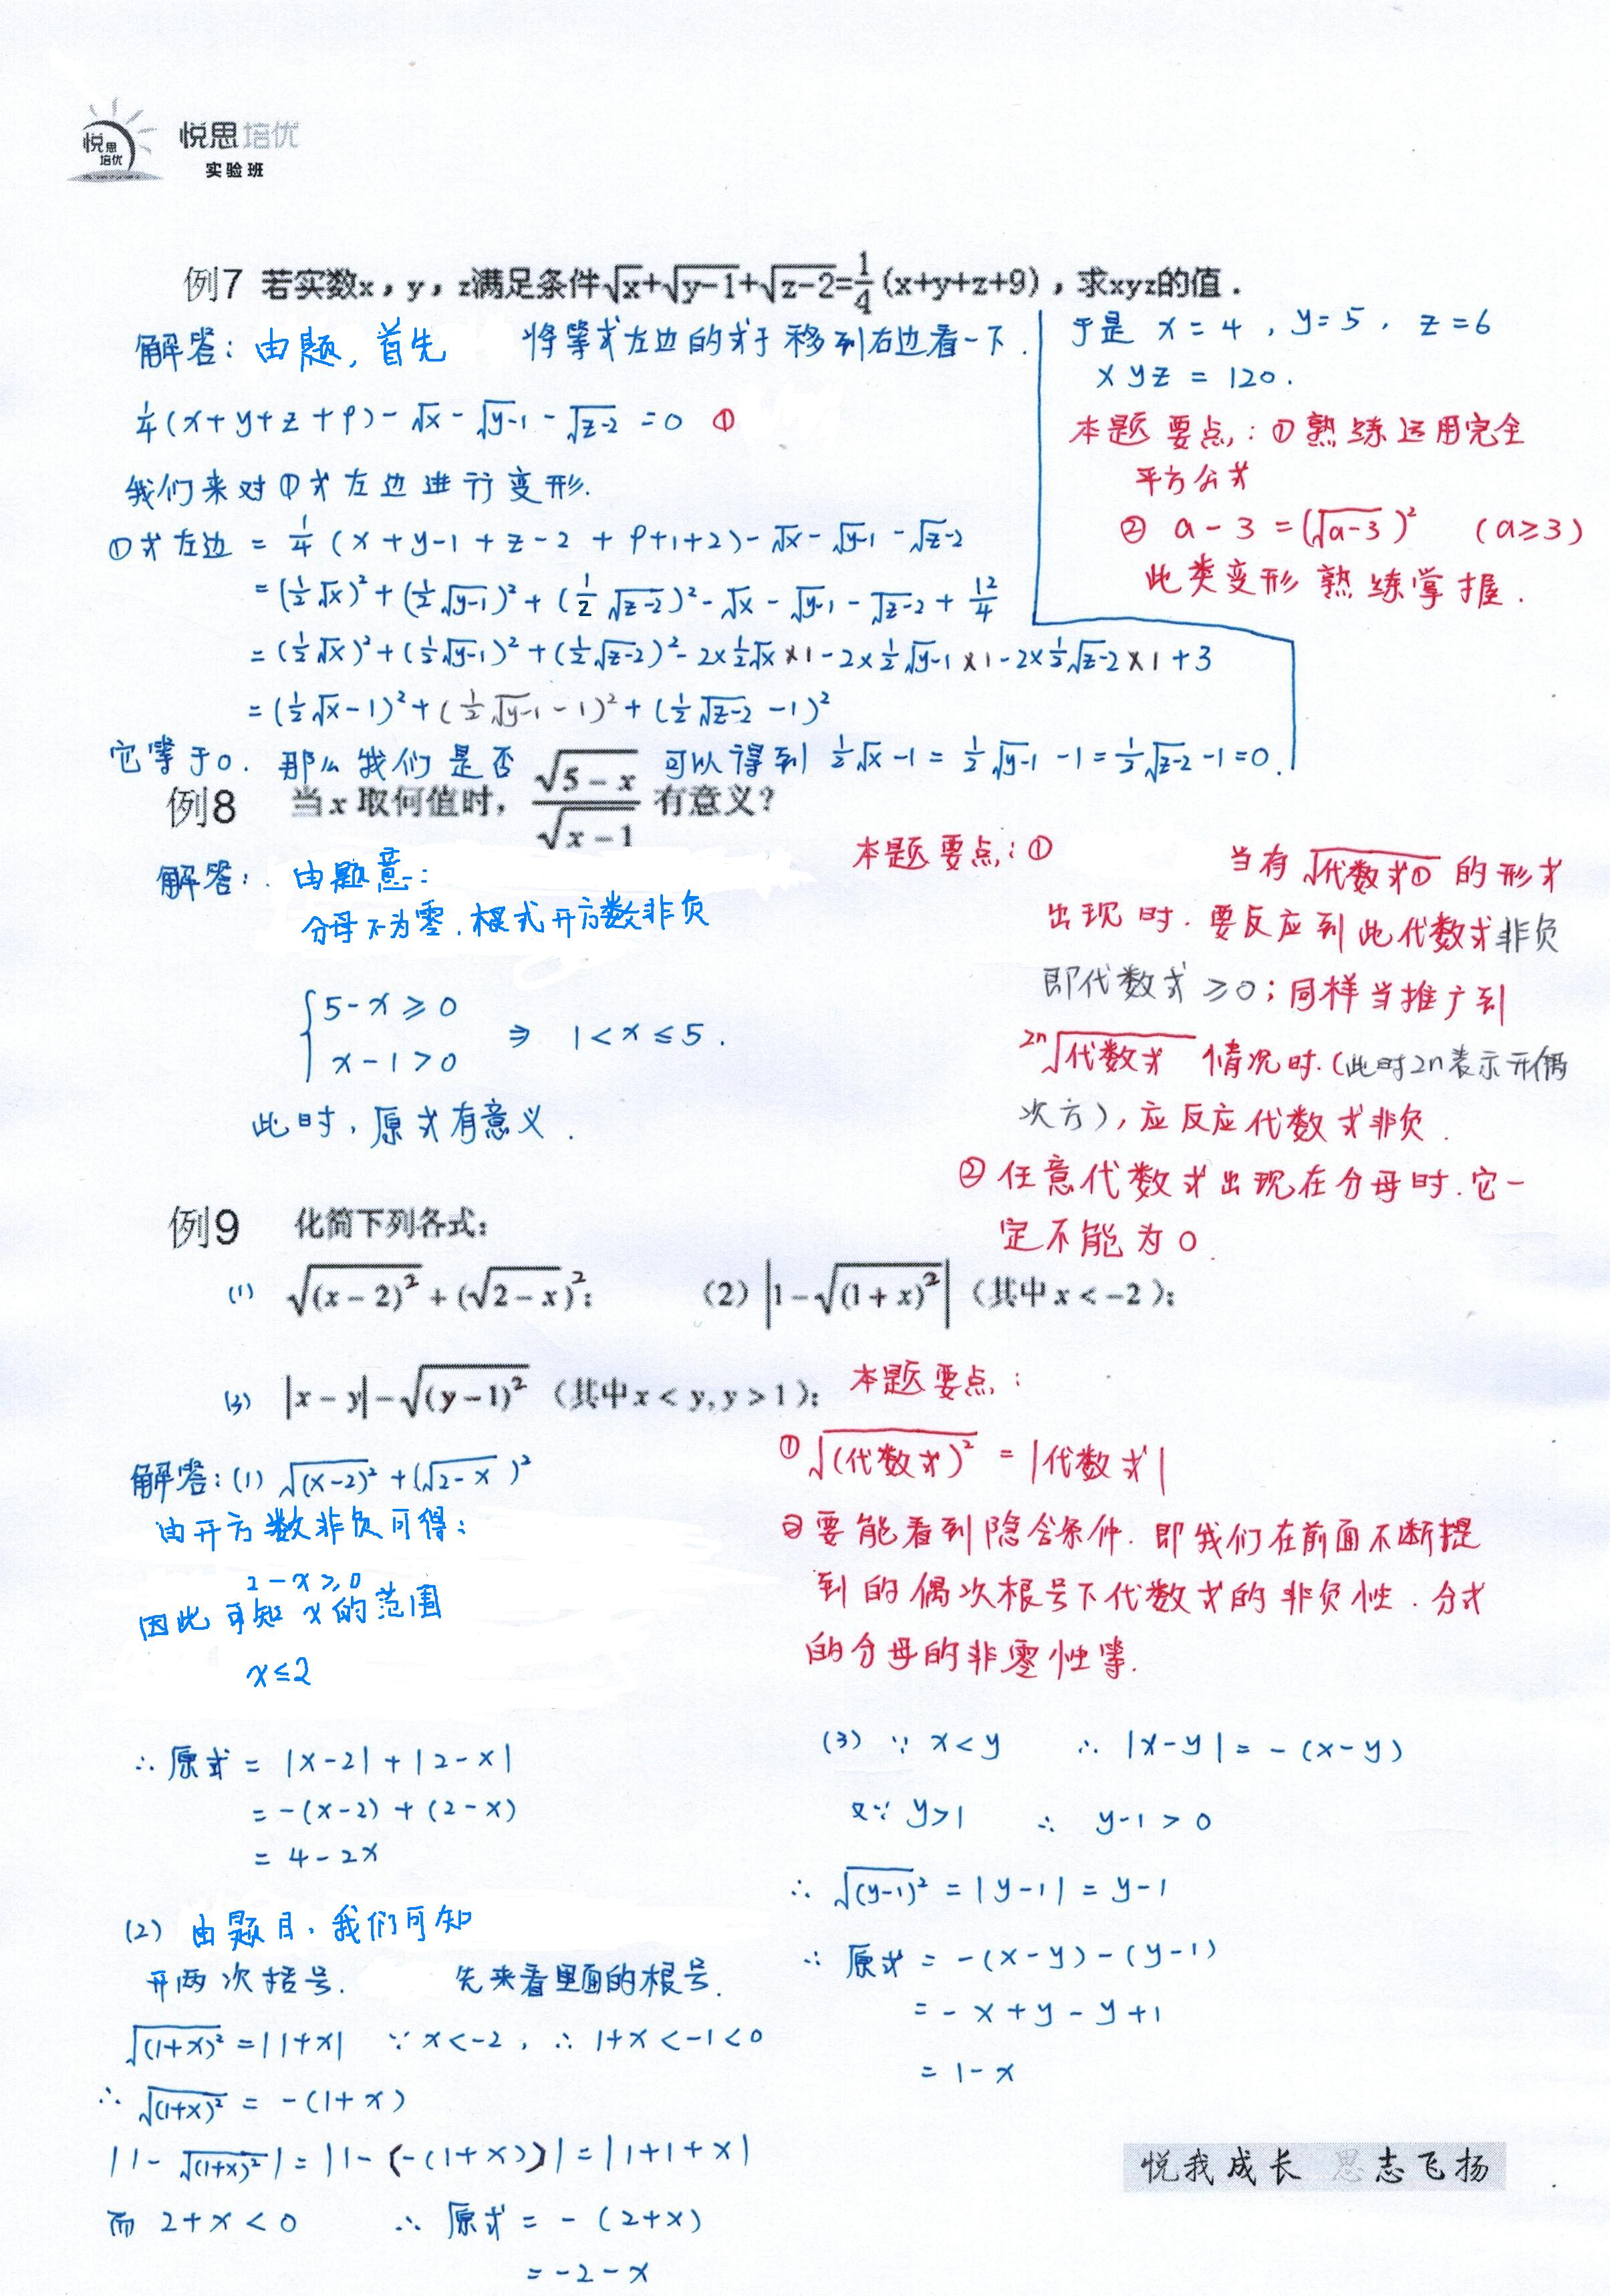 悦思培优
悦思培优
实验班
例7 若实数x，y，z满足条件√x+√(y-1)+√(z-2)=1/4(x+y+z+9)，求xyz的值．
解答：由题，首先 将等式左边的式子移到右边看一下．
1/4(x+y+z+9)-√x-√(y-1)-√(z-2)=0 ①
我们来对①式左边进行变形.
①式左边 = 1/4(x+y-1+z-2+9+1+2)-√x-√(y-1)-√(z-2)
=(1/2√x)²+(1/2√(y-1))²+(1/2√(z-2))²-√x-√(y-1)-√(z-2)+12/4
=(1/2√x)²+(1/2√(y-1))²+(1/2√(z-2))²-2×1/2√x×1-2×1/2√(y-1)×1-2×1/2√(z-2)×1+3
=(1/2√x-1)²+(1/2√(y-1)-1)²+(1/2√(z-2)-1)²
它等于0．那么我们是否可以得到 1/2√x-1=1/2√(y-1)-1=1/2√(z-2)-1=0．
于是 x=4，y=5，z=6
xyz=120．
本题要点：①熟练运用完全
平方公式
② a-3=(√(a-3))² (a≥3)
此类变形熟练掌握．
例8 当x取何值时，√(5-x)/√(x-1) 有意义？
解答：由题意：
分母不为零．根式开方数非负
{5-x≥0
x-1>0 ⇒ 1<x≤5．
此时，原式有意义．
本题要点：① 当有√代数式① 的形式
出现时．要反应到此代数式非负
即代数式≥0；同样当推广到
2n√代数式 情况时．(此时2n表示开偶
次方)，应反应代数式非负．
②任意代数式出现在分母时．它一
定不能为0．
例9 化简下列各式：
(1) √(x-2)²+(√(2-x))²； (2) |1-√(1+x)²|（其中x<-2）；
(3) |x-y|-√(y-1)²（其中x<y,y>1）；
解答：(1) √(x-2)²+(√(2-x))²
由开方数非负可得：
2-x≥0
因此可知x的范围
x≤2
∴原式=|x-2|+|2-x|
=-(x-2)+(2-x)
=4-2x
(2) 由题目，我们可知
开两次括号． 先来看里面的根号．
√(1+x)²=|1+x| ∵x<-2，∴1+x<-1<0
∴ √(1+x)²=-(1+x)
|1-√(1+x)²|=|1-(-(1+x))|=|1+1+x|
而 2+x<0 ∴原式=-(2+x)
=-2-x
本题要点：
①√(代数式)²=|代数式|
②要能看到隐含条件．即我们在前面不断提
到的偶次根号下代数式的非负性．分式
的分母的非零性等．
(3) ∵x<y ∴|x-y|=-(x-y)
又∵y>1 ∴ y-1>0
∴ √(y-1)²=|y-1|=y-1
∴ 原式=-(x-y)-(y-1)
=-x+y-y+1
=1-x
悦我成长 思志飞扬